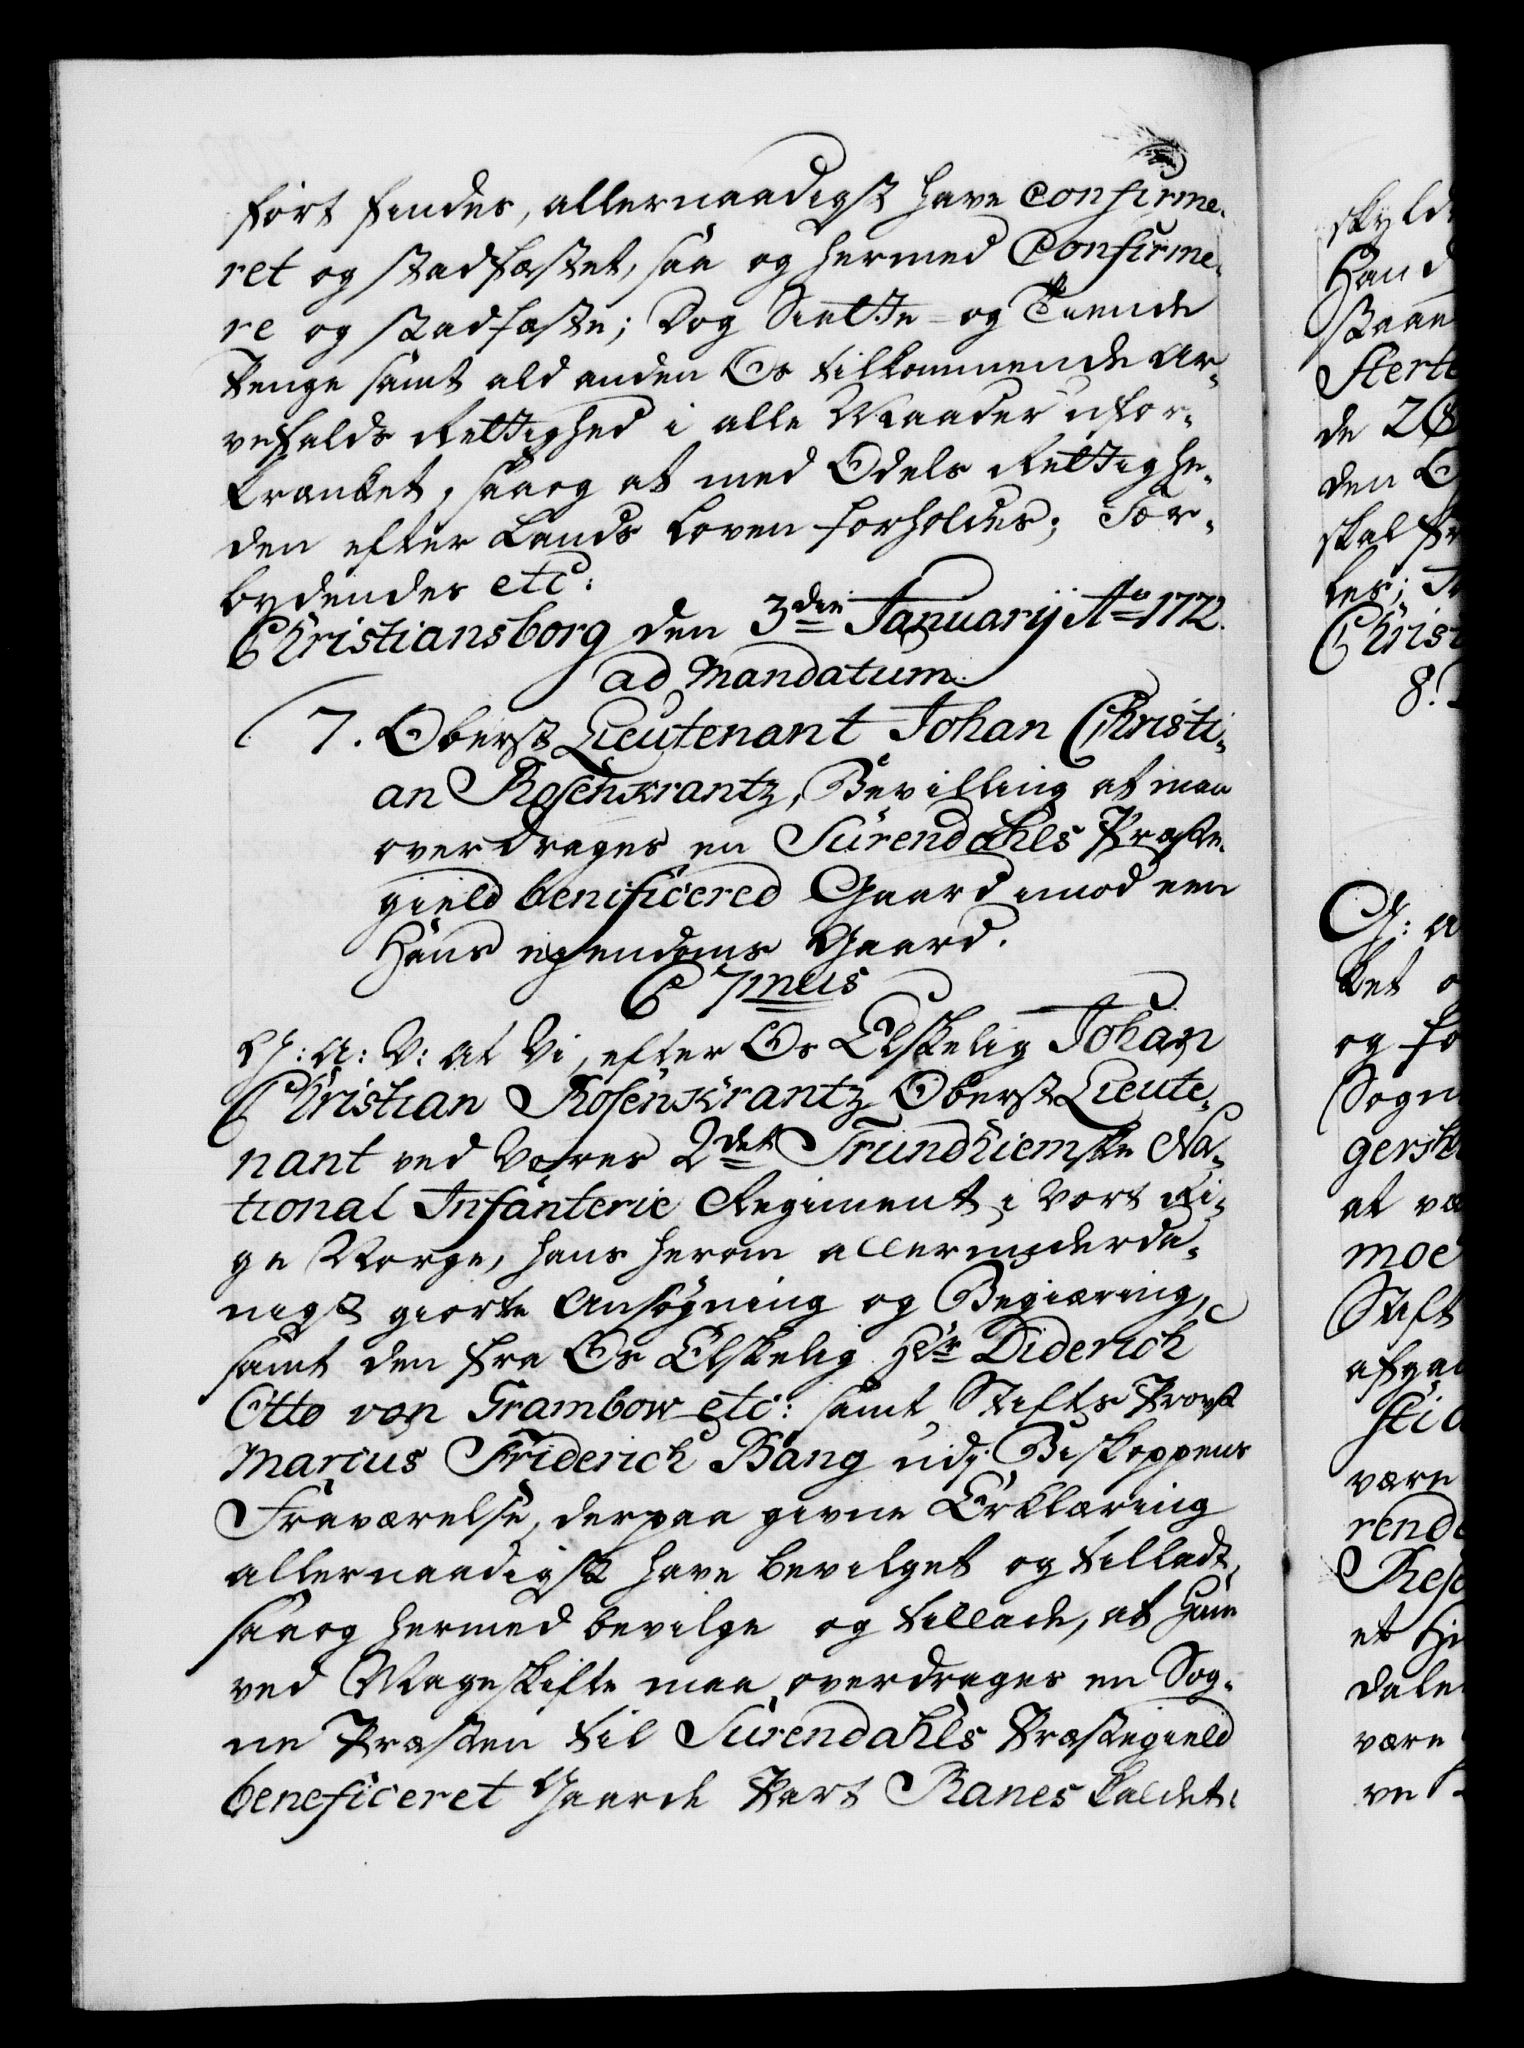 ført findes, allernaadigst have Confirme-
ret og stadfæstet, saa og hermed Confirme-
re og stadfæste; Dog Siette- og Tiende
Penge samt ald anden Os tilkommende Ar-
vefalds Rettighed i alle Maader ufor-
krænket, saa og at med Odels Rettighe-
den efter Lands Loven forholdes; For-
bydendes etc:
Christiansborg den 3die Januarij Ao 1772.
ad Mandatum.
7. Oberst Lieutenant Johan Christi-
an Rosenkrantz, Bevilling at maa
overdrages en Surendahls Præste-
gield beneficered Gaard imod een
Hans ejendoms Gaard.
C 7mus
G: A: V: at Vi, efter Os Elskelig Johan
Christian Rosenkrantz Oberst Lieute-
nant ved Vores 2det Trundhiemske Na-
tional Infanterie Regiment i Vort Ri-
ge Norge, hans herom allerunderda-
nigst giorte Ansøgning og Begiæring,
samt den fra Os Elskelig Hr Diderich
Otto von Grambow etc: samt Stifts Provst
Marcus Friderich Bang udj Biskoppens
Fraværelse, derpaa givne Erklæring
allernaadigst have bevilget og tilladt,
saa og hermed bevilge og tillade, at Ham
ved Mageskifte maa overdrages en Sog-
ne Præsten til Surendahls Præstegield
beneficeret Gaarde Part Ranes kaldet,
skyld
Hand
Staae
Sterte
de 2
den O
skal fr
les; T
Christ
8.
G: A
ket o
og fo
Sogn
gerske
at væ
moe
Stift
afgan
sti
være
rende
Res
et Hi
dale
være
ve